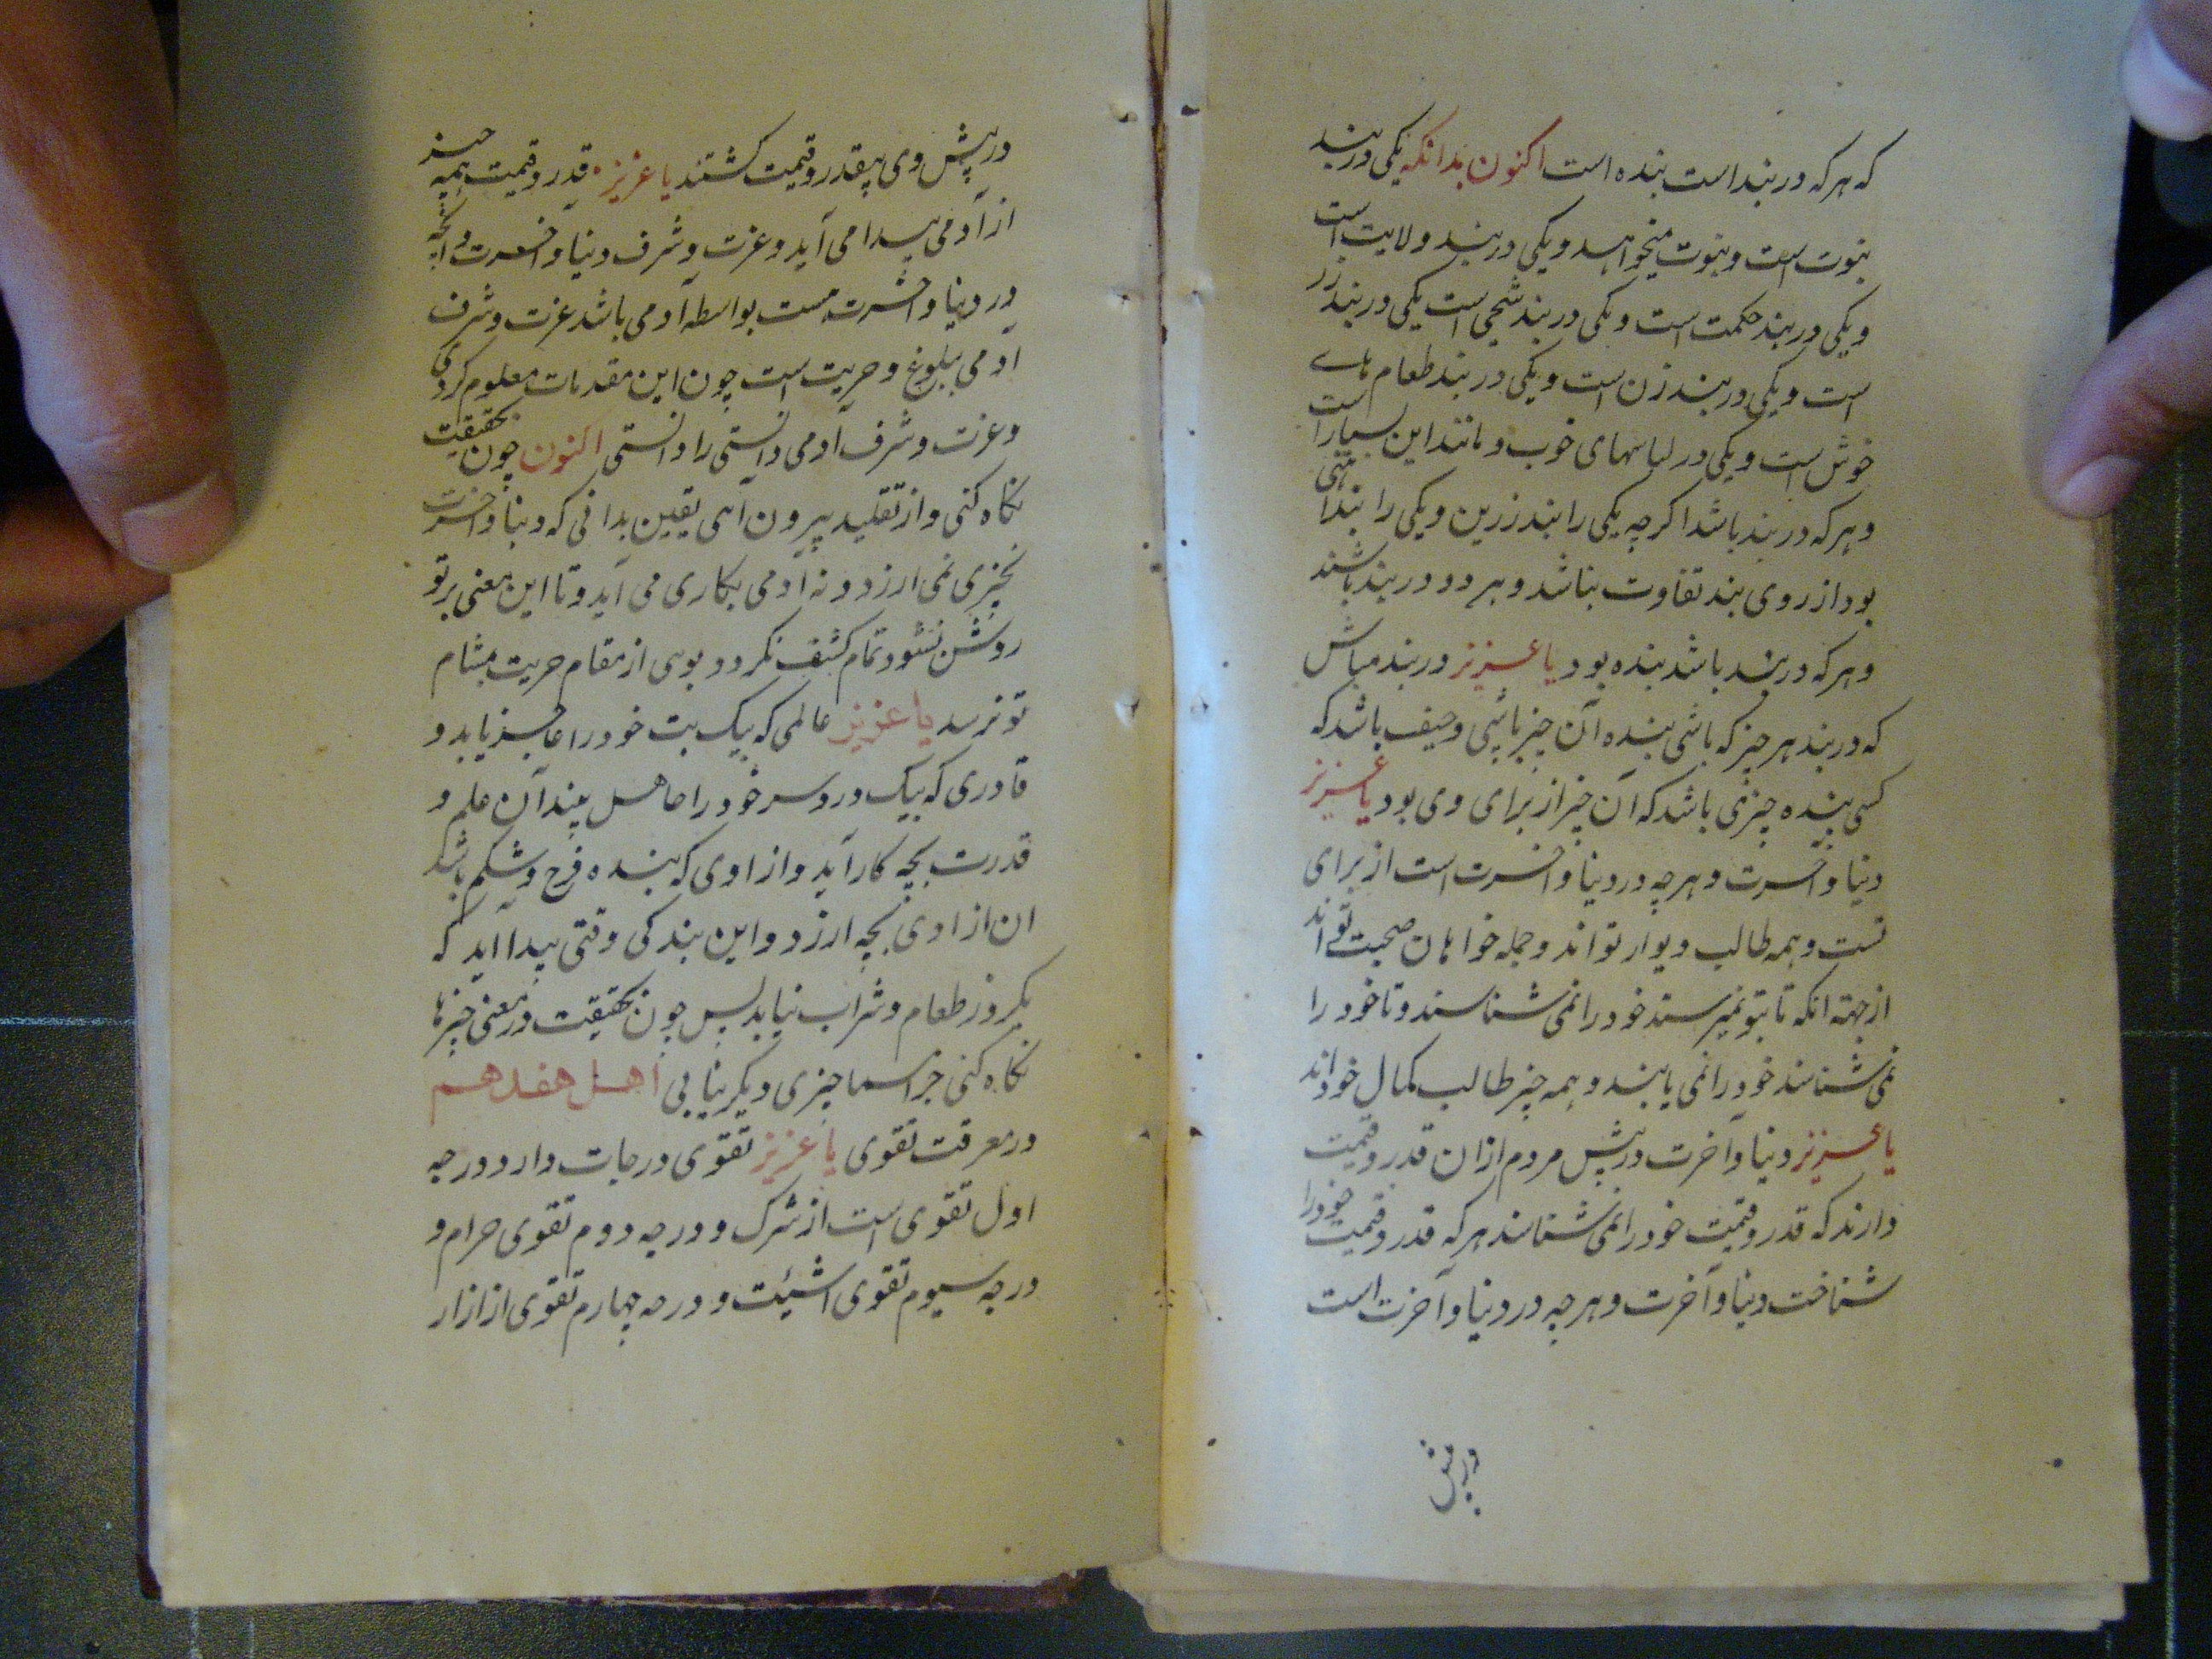 که هرکه در بند است بنده است اکنون بدانکه یکی در بند
نبوت است و نبوت میخواهد و یکی در بند ولایت است
و یکی در بند حکمت است و یکی در بند شیخی است یکی در بند زر
است و یکی در بند زن است و یکی در بند طعام های
خوش است و یکی در لباسهای خوب و مانند این بسیار است
و هرکه در بند باشد اگرچه یکی را بند زرین و یکی را بند آهنی
بود از روی بند تفاوت نباشد و هر دو در بند باشند
و هرکه در بند باشد بنده بود یا عزیز در بند مباش
که در بند هر چیز که باشی بنده آن چیز باشی و حیف باشد که
کسی بنده چیزی باشد که آن چیز از برای وی بود یا عزیز
دنیا و آخرت و هرچه در دنیا و آخرت است از برای
تست و همه طالب دیدار تواند و جمله خواهان صحبت تواند
از جهته انکه تا بتو نمیرسند خود را نمی شناسند و تا خود را
نمی شناسند خود را نمی یابند و همه چیز طالب کمال خوداند
یا عزیز دنیا و آخرت در پیش مردم ازان قدر و قیمت
دارند که قدر و قیمت خود را نمی شناسند هرکه قدر و قیمت خود را
شناخت دنیا و آخرت و هرچه در دنیا و آخرت است
در پیش
در پیش وی بیقدر و قیمت گشتند یا عزیز قدر و قیمت همه چیز
از آدمی پیدا می آید و عزت و شرف دنیا و آخرت و آنچه
در دنیا و آخرت هست بواسطه آدمی باشد عزت و شرف
آدمی ببلوغ و حریت است چون این مقدمات معلوم کردی
و عزت و شرف آدمی دانستی را دانستی اکنون چون بحقیقت
نگاه کنی و از تقلید بیرون آئی یقین بدانی که دنیا و آخرت
بچیزی نمی ارزد و نه آدمی بکاری می آید و تا این معنی بر تو
روشن نشود و تمام کشف نگردد بوی از مقام حریت بمشام
تو نرسد یا عزیز عالمی که بیک بت خود را عاجز یابد و
قادری که بیک درد سر خود را جاهل بیند آن علم و
قدرت بچه کار آید و ازادی که بنده فرج و شکم باشد
ان ازادی بچه ارزد و این بندگی وقتی پیدا اید که
یکروز طعام و شراب نیابد پس چون بحقیقت در معنی چیزها
نگاه کنی جز اسما چیزی دیگر نیابی اصل هفدهم
در معرفت تقوی یا عزیز تقوی درجات دارد درجه
اول تقوی است از شرک و درجه دوم تقوی حرام و
درجه سیوم تقوی اشیئت و درجه چهارم تقوی از ازار